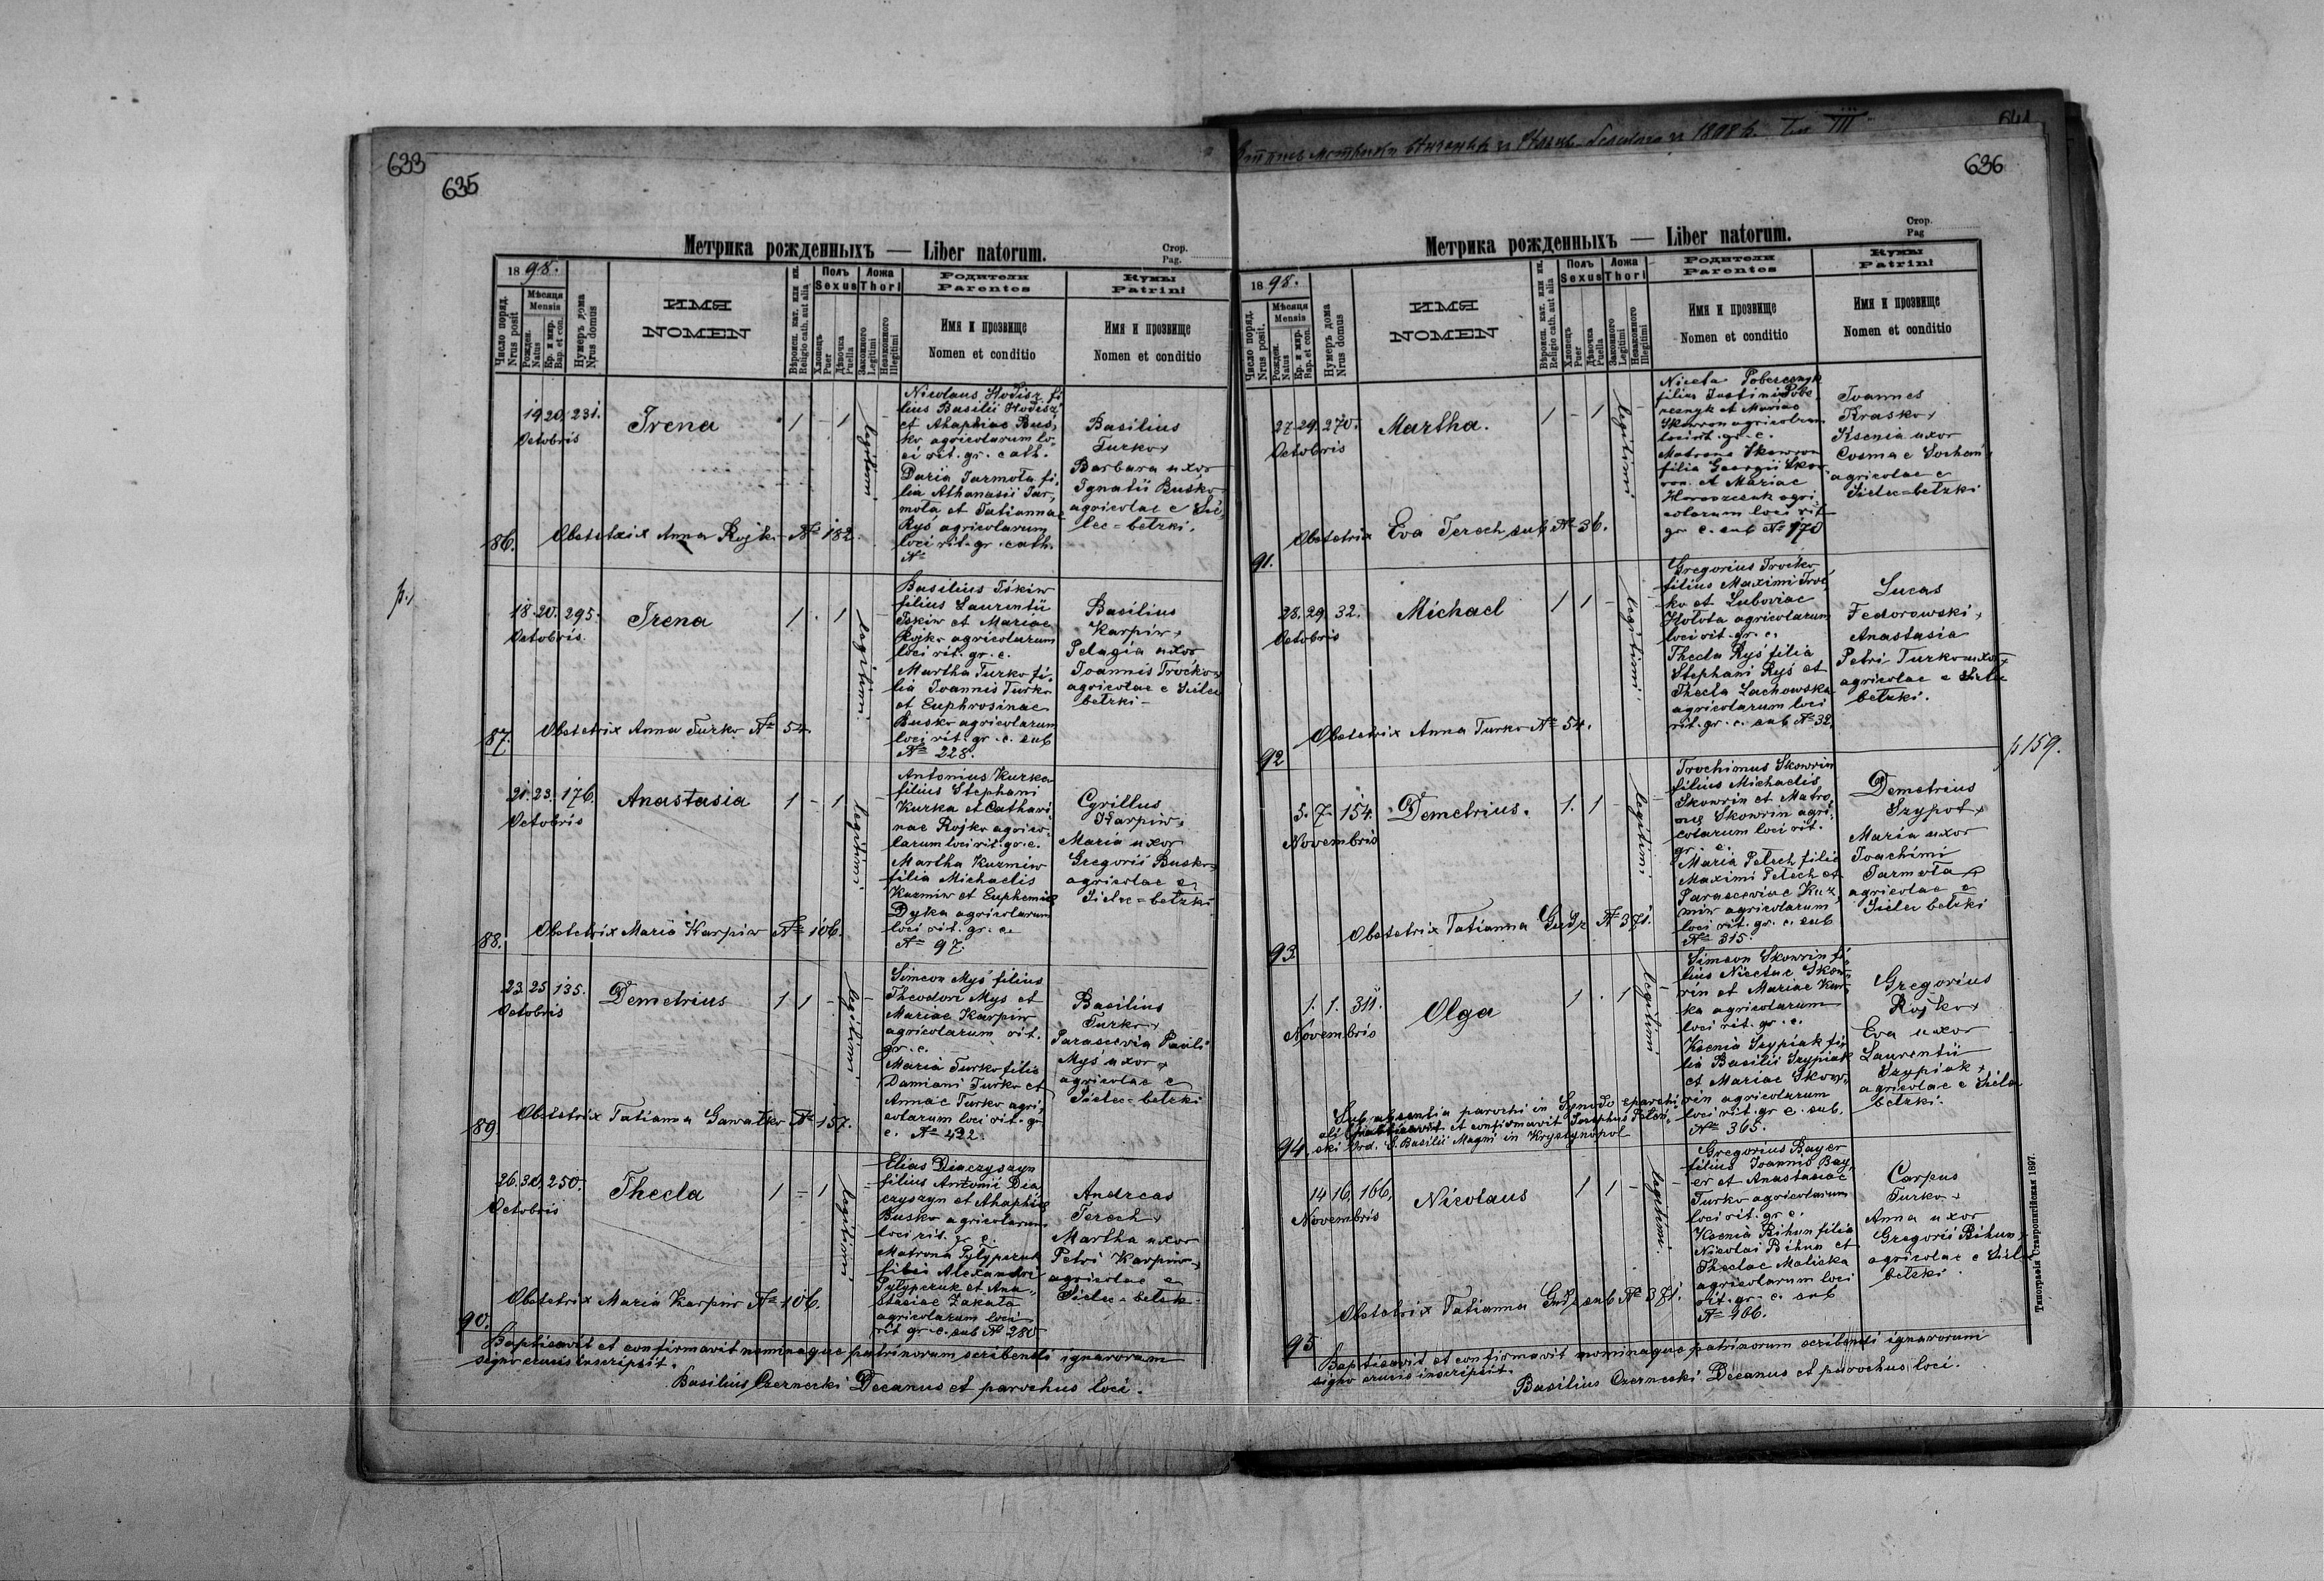 633
635
Метрика рожденныхъ — Liber natorum.
Стор.
Pag.
1898.
Число поряд.
Nrus posit
Мѣсяця
Mensis
Рожден.
Natus
Кр. и мир.
Bap. et con.
Нумеръ дома
Nrus domus
ИМЯ
NOMEN
Вѣроисп. кат. или ин.
Religio cath. aut alia
Полъ
Sexus
Хлопецъ
Puer
Дѣвочка
Puella
Ложа
Thori
Законного
Legitimi
Незаконного
Illegitimi
Родители
Parentes
Имя и прозвище
Nomen et conditio
Кумы
Patrini
Имя и прозвище
Nomen et conditio
86.
19 20. 231.
Octobris
Irena
1 - 1 -
legitimi
Nicolaus Hodisz fi-
lius Basilii Hodisz
et Ahaphiae Bus-
ko agricolarum lo-
ci rit. gr. cath.
Daria Jarmola fi-
lia Athanasii Jar-
mola et Tatiannae
Ryś agricolarum
loci rit. gr. cath.
№
Basilius
Turko +
Barbara uxor
Ignatii Busko
agricolae e Sie-
lec = betzki.
Obstetrix Anna Rojk № 182.
p.
87.
18. 20. 295.
Octobris.
Irena
1 . 1
legitimi
Basilius Iśkiw
filius Laurentii
Iskiw et Mariae
Rojko agricolarum
loci rit. gr. c.
Martha Turko fi-
lia Joannis Turko
et Euphrosinae
Busko agricolarum
loci rit. gr. c. sub
№ 228.
Basilius
Karpiw +
Pelagia uxor
Joannis Troćko +
agricolae e Sielec
betzki -
Obstetrix Anna Turko № 54.
88.
21. 23. 176.
Octobris
Anastasia
1 - 1 -
legitimi
Antonius Kurka
filius Stephani
Kurka et Cathari-
nae Rojko agrico-
larum loci rit. gr. c.
Martha Kuzmiw
filia Michaelis
Kuzmiw et Euphemiae
Dyka agricolarum
loci rit. gr. c.
№ 97.
Cyrillus
Karpiw +
Maria uxor
Gregorii Busko +
agricolae e
Sielec = betzki
Obstetrix Maria Karpiw № 106.
89.
23. 25. 135.
Octobris
Demetrius
1 1 - -
legitimi
Simeon Myś filius
Theodori Myś et
Mariae Karpiw
agricolarum rit.
gr. c.
Maria Turko filia
Damiani Turko et
Annae Turko agri-
colarum loci rit. gr
c. № 432.
Basilius
Turko +
Parascevia Pauli
Myś uxor +
agricolae e
Sielec = betzki
Obstetrix Tatianna Gawalko № 157.
90.
26. 30. 250.
Octobris
Thecla
1 - 1 -
legitimi
Elias Diaczyszyn
filius Antonii Dia-
czyszyn et Ahaphiae
Busko agricolarum
loci rit. gr. c.
Matrona Pylypczuk
filia Alexandri
Pylypczuk et Ana-
stasiae Zakala
agricolarum loci
rit gr. c. sub № 280.
Andreas
Terech +
Martha uxor
Petri Karpiw +
agricolae e
Sielec = betzk -
Obstetrix Maria Karpiw № 106.
Baptisavit et confirmavit nominaque patrinorum scribendi ignarorum
signo crucis inscripsit.
Basilius Czernecki Decanus et parochus loci.
1898 р. Том III
641
636
Метрика рожденныхъ — Liber natorum.
Стор.
Pag
1898.
Число поряд.
Nrus posit.
Мѣсяця
Mensis
Рожден.
Natus
Кр. и мир.
Bap. et con.
Нумеръ дома
Nrus domus
ИМЯ
NOMEN
Вѣроисп. кат. или ин.
Religio cath. aut alia
Полъ
Sexus
Хлопецъ
Puer
Дѣвочка
Puella
Ложа
Thori
Законного
Legitimi
Незаконного
Illegitimi
Родители
Parentes
Имя и прозвище
Nomen et conditio
Кумы
Patrini
Имя и прозвище
Nomen et conditio
91.
27. 29. 270.
Octobris
Martha.
1 - 1 -
legitimi
Niceta Pobereznyk
filius Justini Pobe-
reznyk et Mariae
Skowron agricolarum
loci rit. gr. c.
Matrona Skowron
filia Georgii Skow-
ron et Mariae
agri-
colarum loci rit
gr. c. sub № 170
Joannes
Krasko +
Ksenia uxor
Cosmae
agricolae e
Sielec = betzki
Obstetrix Eva Terech sub № 36.
92
28. 29. 32.
Octobris
Michael
1 1 -
legitimi
Gregorius Troćko
filius Maximi Troć-
ko et Luboviae
Holota agricolarum
loci rit. gr. c.
Thecla Ryś filia
Stephani Ryś et
Thecla Lachowska
agricolarum loci
rit. gr. c. sub № 32.
Lucas
Fedorowski +
Anastasia
Petri Turko uxor +
agricolae e Sielec
betzki.
Obstetrix Anna Turko № 54.
p 159.
93.
5. 7. 154.
Novembris
Demetrius.
1. 1 - -
legitimi
Trochimus Skowrin
filius Michaelis
Skowrin et Matro-
nae Skowrin agri-
colarum loci rit.
gr. c.
Maria Petech filia
Maximi Petech et
Parasceviae Kuz-
miw agricolarum
loci rit. gr. c. sub
№ 315.
Demetrius
Szypot +
Maria uxor
Joachimi
Jarmola +
agricolae e
Sielec betzki
Obstetrix Tatianna Gudz № 371.
94.
1. 1. 311.
Novembris
Olga
1 . 1 -
legitimi
Simeon Skowrin fi-
lius Nicetae Skow-
rin et Mariae Kur-
ka agricolarum
loci rit. gr. c.
Ksenia Szypiak fi-
lia Basilii Szypiak
et Mariae Skow-
rin agricolarum
loci rit. gr c. sub.
№ 365.
Gregorius
Rojko +
Eva uxor
Laurentii
Szypiak +
agricolae e Siele
betzki.
Sub absentia parochi in Synodo eparchi-
ali baptisavit et confirmavit Josephus
Ord. S. Basilii Magni in Krystynopol
95
14 16. 166.
Novembris
Nicolaus
1 1 - -
legitimi.
Gregorius Bayer
filius Joannis Bay-
er et Anastasiae
Turko agricolarum
loci rit. gr c.
Ksenia Bihun filia
Nicolai Bihun et
Theclae Malicka
agricolarum loci
rit. gr. c. sub
№ 166.
Carpus
Turko +
Anna uxor
Gregorii Bihun +
agricolae e Siele
betzki.
Obstetrix Tatianna Gudz sub № 371.
Baptisavit et confirmavit nominaque patrinorum scribendi ignarorum
signo crucis inscripsit.
Basilius Czernecki Decanus et parochus loci.
Типографія Ставропигійская 1897.